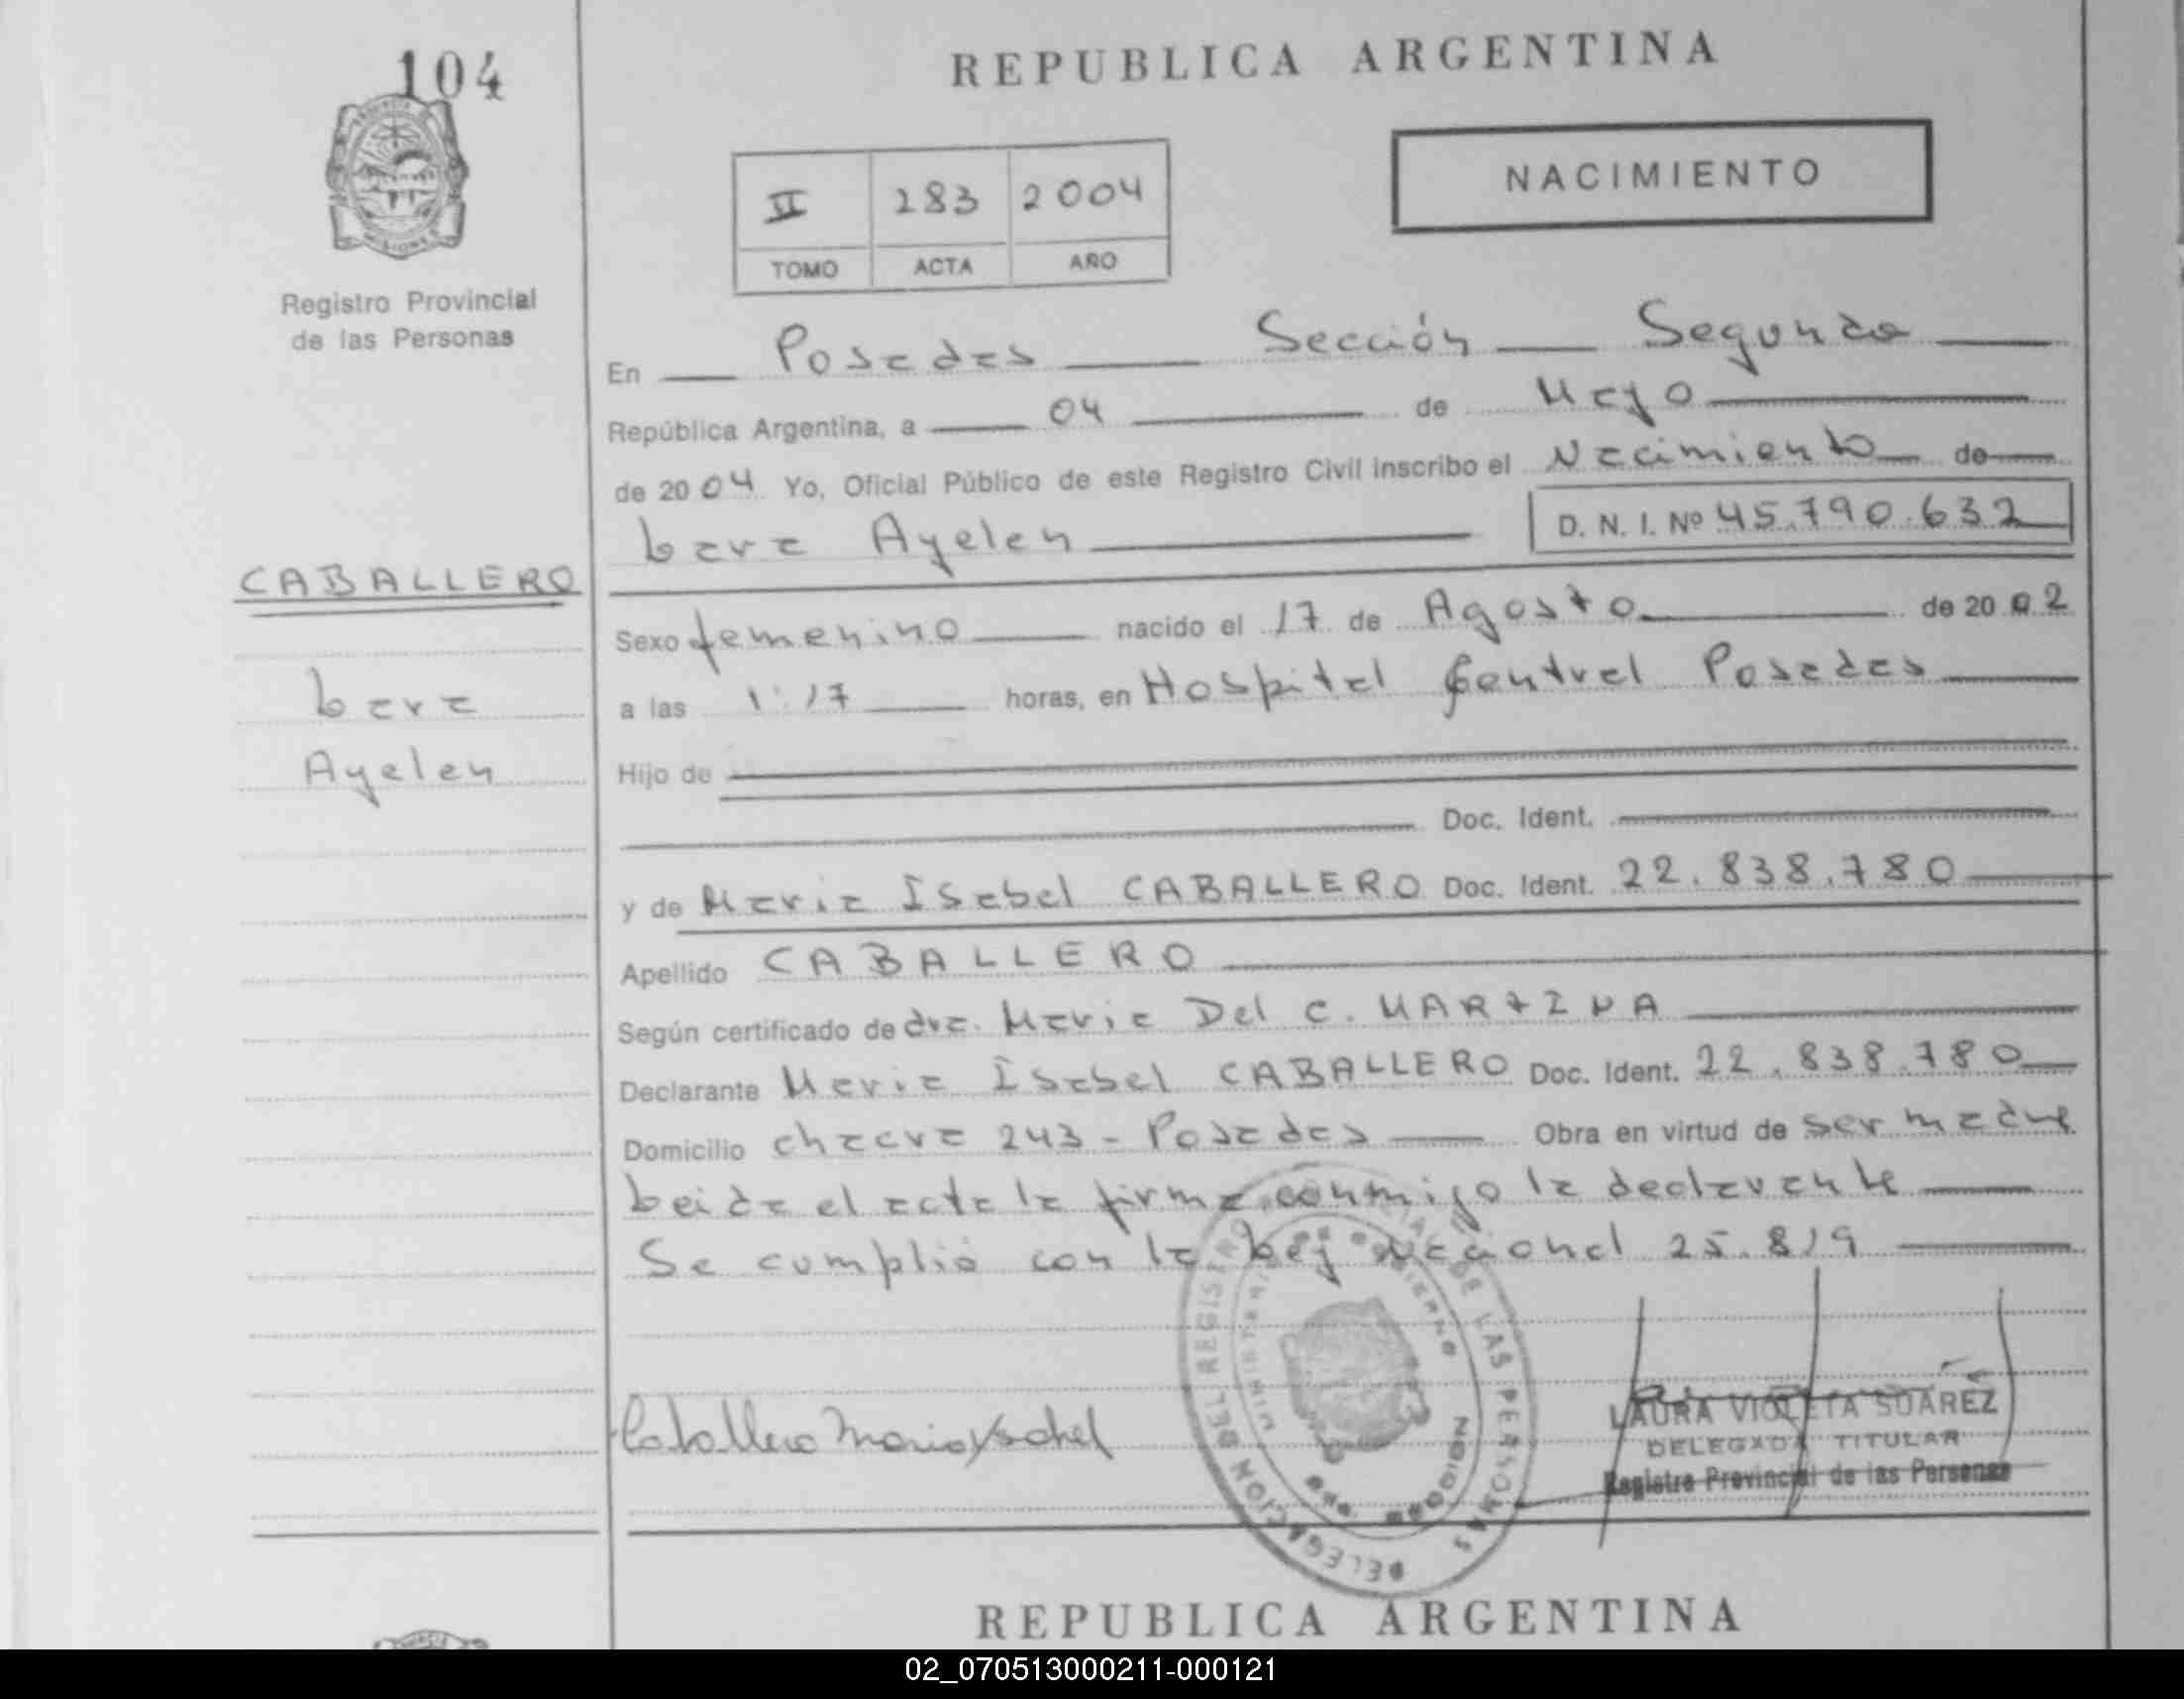 104
REPUBLICA ARGENTINA
NACIMIENTO
II 283 2004
TOMO ACTA AÑO
Registro Provincial
de las Personas
En Posadas Sección Segunda
República Argentina, a 04 de Mayo
de 2004 Yo, Oficial Público de este Registro Civil inscribo el Nacimiento de
Lara Ayelen D. N. I. Nº 45.790.632
CABALLERO
Lara
Ayelen
Sexo femenino nacido el 17 de Agosto de 2002
a las 1:17 horas, en Hospital Central Posadas
Hijo de
Doc. Ident.
y de Maria Isabel CABALLERO Doc. Ident. 22.838.780
Apellido CABALLERO
Según certificado de dra. Maria Del C. MARTINA
Declarante Maria Isabel CABALLERO Doc. Ident. 22.838.780
Domicilio chacra 243 - Posadas Obra en virtud de ser madre
Leida el acta la firma conmigo la declarante
Se cumplió con la Ley Nacional 25.819
Caballero Maria Ysabel
DELEGACION DEL REGISTRO DE LAS PERSONAS
LAURA VIOLETA SUAREZ
DELEGADA TITULAR
Registro Provincial de las Personas
REPUBLICA ARGENTINA
02_070513000211-000121